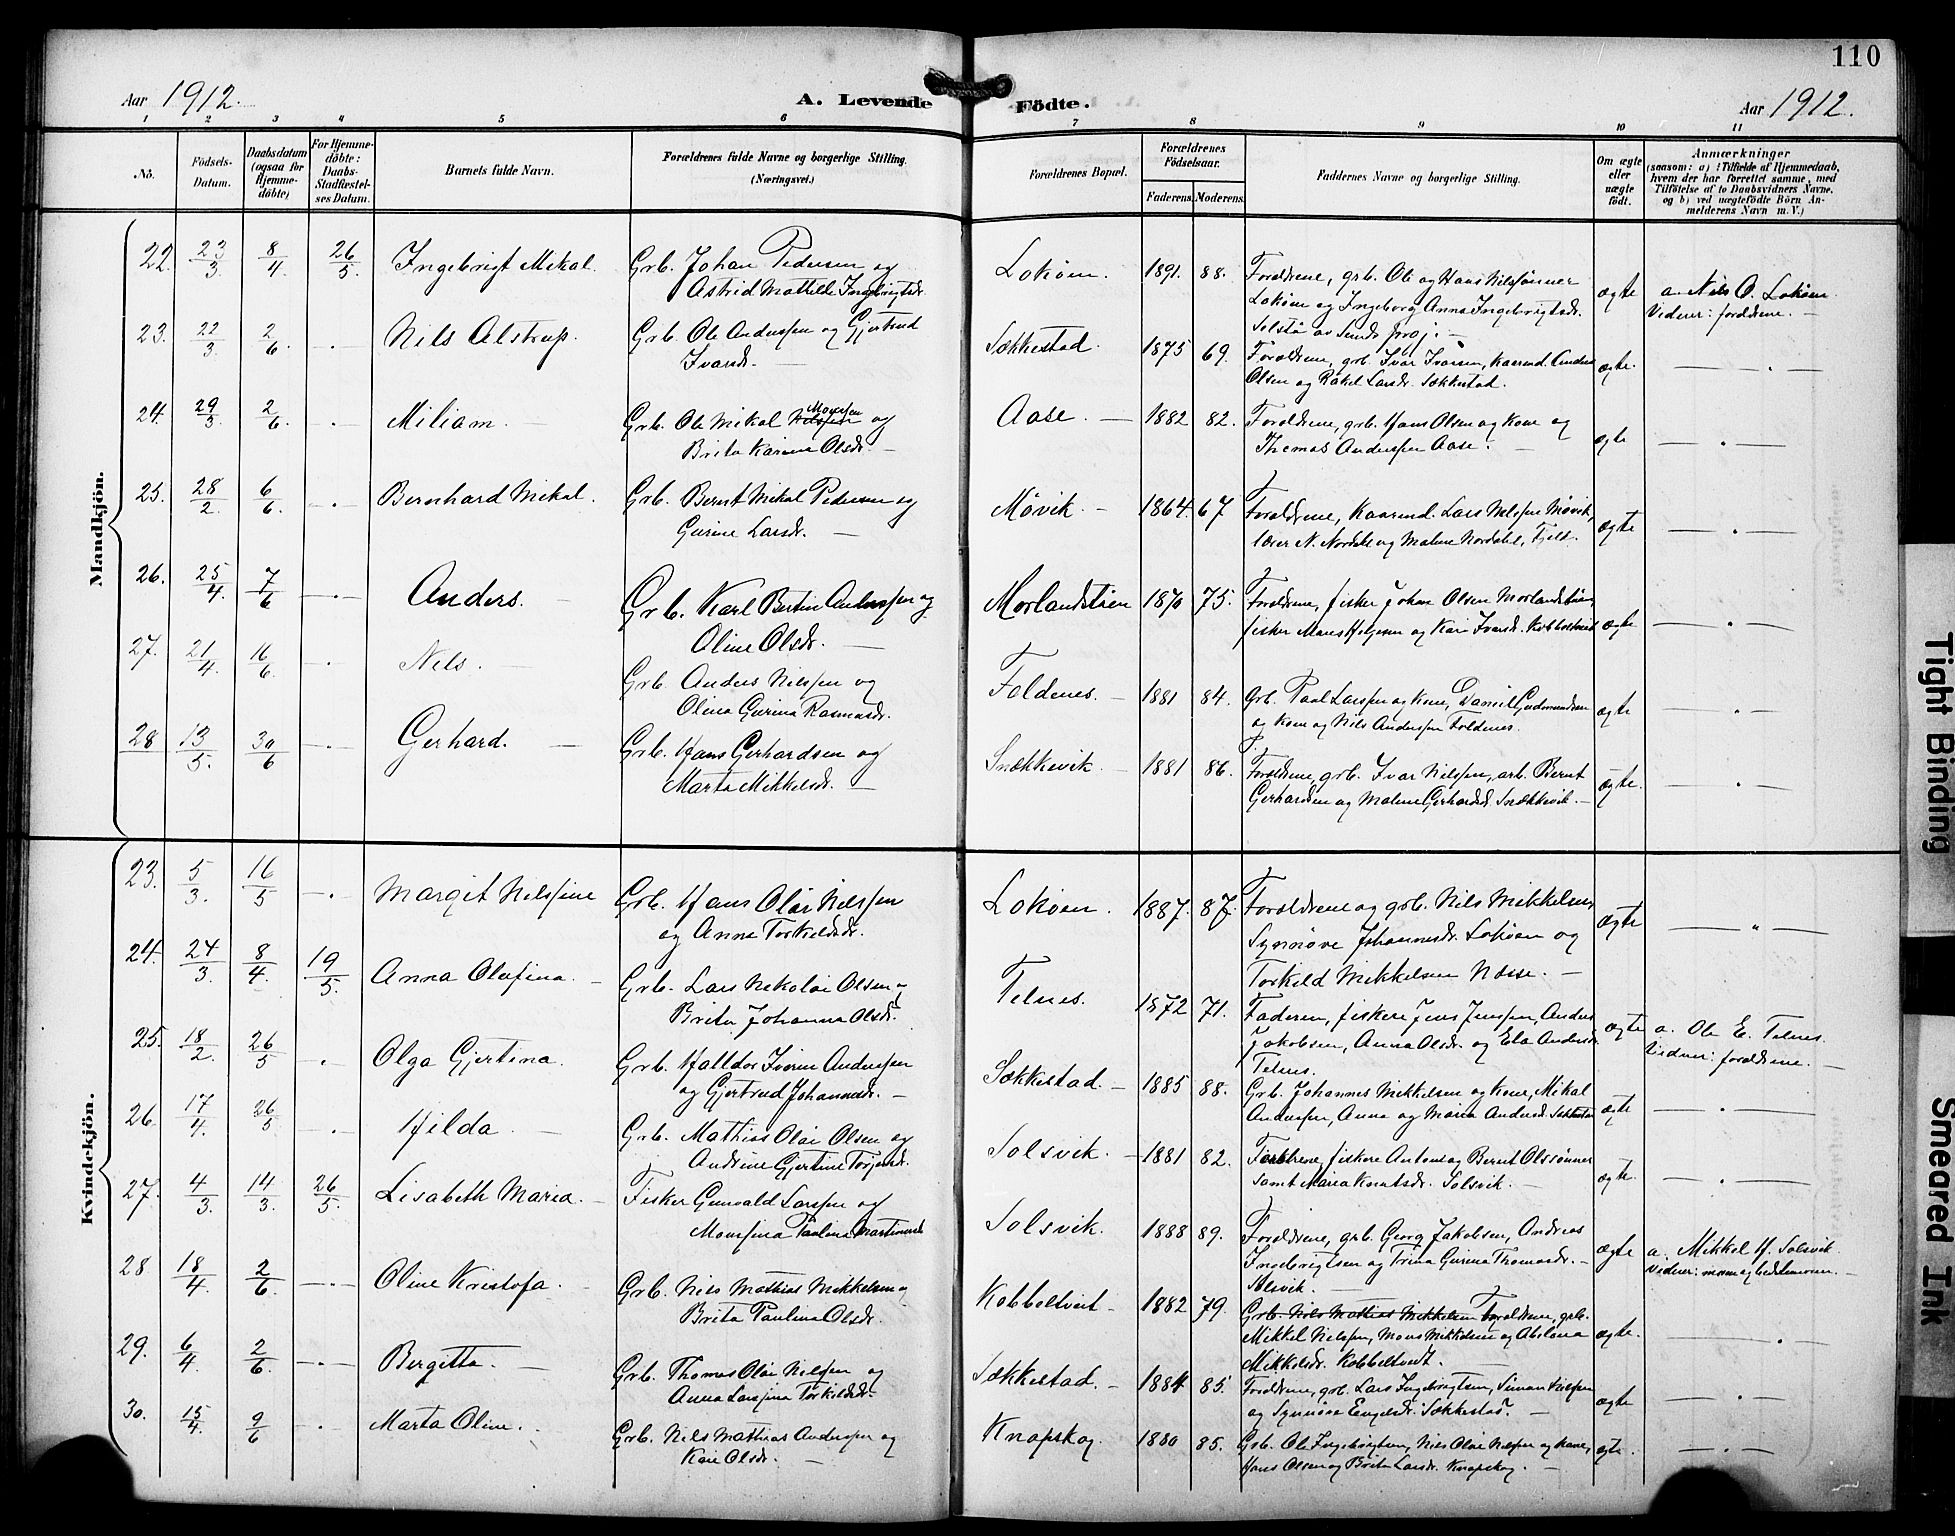 110
Aar 1912.
A. Levende Födte.
Aar 1912.
1 2 3 4 5 6 7 8 9 10 11
No.
Födsels-Datum.
Daabsdatum (ogsaa for Hjemmedöbte)
For Hjemmedöbte: Daabs-Stadfæstelses Datum.
Barnets fulde Navn.
Forældrenes fulde Navne og borgerlige Stilling. (Næringsvei.)
Forældrenes Bopæl.
Forældrenes Födselsaar.
Faderens. Moderens.
Faddernes Navne og borgerlige Stilling.
Om ægte eller uægte födt.
Anmærkninger
(saasom: a) i Tilfælde af Hjemmedaab, hvem der har forrettet samme, med Tilföielse af to Daabsvidners Navne, og b) ved uægtefödte Börn Anmelderens Navn m. V.)
Mandkjön.
22. 23/3 8/4 26/5 Ingebrigt Mikal. Grb. Johan Pedersen og
Astrid Mathilde Ingebrigtsdr.
Lokøen. 1891. 88. Forældrene, grb. Ole og Hans Nilssønner
Lokøen og Ingeborg Anna Ingebrigtsdr.
Solstø av Sunds prgj. ægte a. Nils O. Lokøen.
Vidner: forældrene.
23. 22/3 2/6 Nils Alstrup. Grb. Ole Anderssen og Gjertrud
Ivarsdr.
Sækkestad. 1875 69. Forældrene, grb. Ivar Ivarsen, Kaarmd. Anders
Olsen og Rakel Larsdr. Sækkestad. ægte.
24. 29/3 2/6 Miliam. Grb. Ole Mikal Monssen og
Brita Karina Olsdr.
Aase. 1882 82. Forældrene, grb. Hans Olsen og Kone og
Thomas Anderssen Aase. ægte
25. 28/2 6/6 Bernhard Mikal. Grb. Bernt Mikal Pedersen og
Gurine Larsdr.
Møvik. 1864. 67 Forældrene, Kaarmd. Lars Nilssen Møvik,
lærer N. Nordahl og Malene Nordahl, Fjeld. ægte
26. 25/4 7/6 Anders. Grb. Karl Bertin Anderssen og
Oline Olsdr.
Morlandstøen 1870 75. Forældrene, fisker Johan Olsen Morlandstøen,
fisker Mons Helgesen og Kari Ivarsdr. Kobbeltveit ægte
27. 21/4 16/6 Nils. Grb. Anders Nilssen og
Olina Gurina Rasmusdr.
Foldenes. 1881 84. Grb. Paul Larssen og Kone, Daniel Gudmundsen
og Kone og Nils Anderssen Foldenes. ægte
28 13/5. 30/6 Gerhard. Grb. Hans Gerhardsen og
Marta Mikkelsdr.
Snækkevik. 1881 86. Forældrene, grb. Ivar Nilssen, arb. Bernt
Gerhardsen og Malene Gerhardsd. Snækkevik. ægte.
Kvindekjön.
23. 5/3. 16/5 Margit Nilssine Grb. Hans Olai Nilssen
og Anna Torkildsdr.
Lokøen. 1887. 87. Forældrene og grb. Nils Mikkelsen,
Synnøve Johannesdr. Lokøen og
Torkild Mikkelsen Næsse. ægte
24. 24/3. 8/4 19/5. Anna Olufina. Grb. Lars Nikolai Olsen og
Brita Johanna Olsdr.
Telnes. 1872 71. Faderen, fiskere Jens Jenssen, Anders
Jakobsen, Anna Olsdr. og Ela Andersdr.
Telnes. ægte a. Ole E. Telnes.
Vidner: forældrene.
25. 18/2. 26/5 Olga Gjertina. Grb. Halldor Iverin Anderssen
og Gjertrud Johannesdr.
Sækkestad. 1885 88. Grb. Johannes Mikkelsen og Kone, Mikal
Anderssen, Anna og Maria Andersd. Sekkestad ægte
26. 17/4 26/5 Hilda Grb. Mathias Olai Olsen og
Andrine Gjertine Torjersdr.
Solsvik. 1881 82. Forældrene, fiskere Antone og Bernt Olssønner
samt Maria Knutsdr. Solsvik. ægte.
27. 4/3. 14/3. 26/5. Lisabeth Maria. Fisker Gunvald Larssen og
Monssina Paulina Martinusdr.
Solsvik. 1888 89. Forældrene, grb. Georg Jakobsen, Andreas
Ingebrigtsen og Trina Gurina Thomasdr.
Solsvik. ægte a. Mikkel H. Solsvik
Vidner: moren og bedstemoren.
28 18/4 2/6. Oline Kristofa. Grb. Nils Mathias Mikkelsen og
Brita Paulina Olsdr.
Kobbeltveit 1882 79. Grb. Nils Mathias Mikkelsen Forældrene, grb.
Mikkel Nilssen, Mons Mikkelsen og Abelona
Mikkelsdr. Kobbeltveit. ægte.
29. 6/4 2/6. Bergitta. Grb. Thomas Olai Nilssen og
Anna Larssina Torkildsdr.
Sækkestad. 1884 85. Forældrene, grb. Lars Ingebrigtsen, Simon Nilssen
og Synnøve Engelsdr. Sækkestad. ægte
30. 15/4. 9/6 Marta Oline. Grb. Nils Mathias Anderssen og
Kari Olsdr.
Knapskog 1880 85. Grb. Ole Ingebrigtsen, Nils Olai Nilssen og kone,
Hans Olsen og Brita Larsdr. Knapskog. ægte.
Tight Binding
Smeared Ink